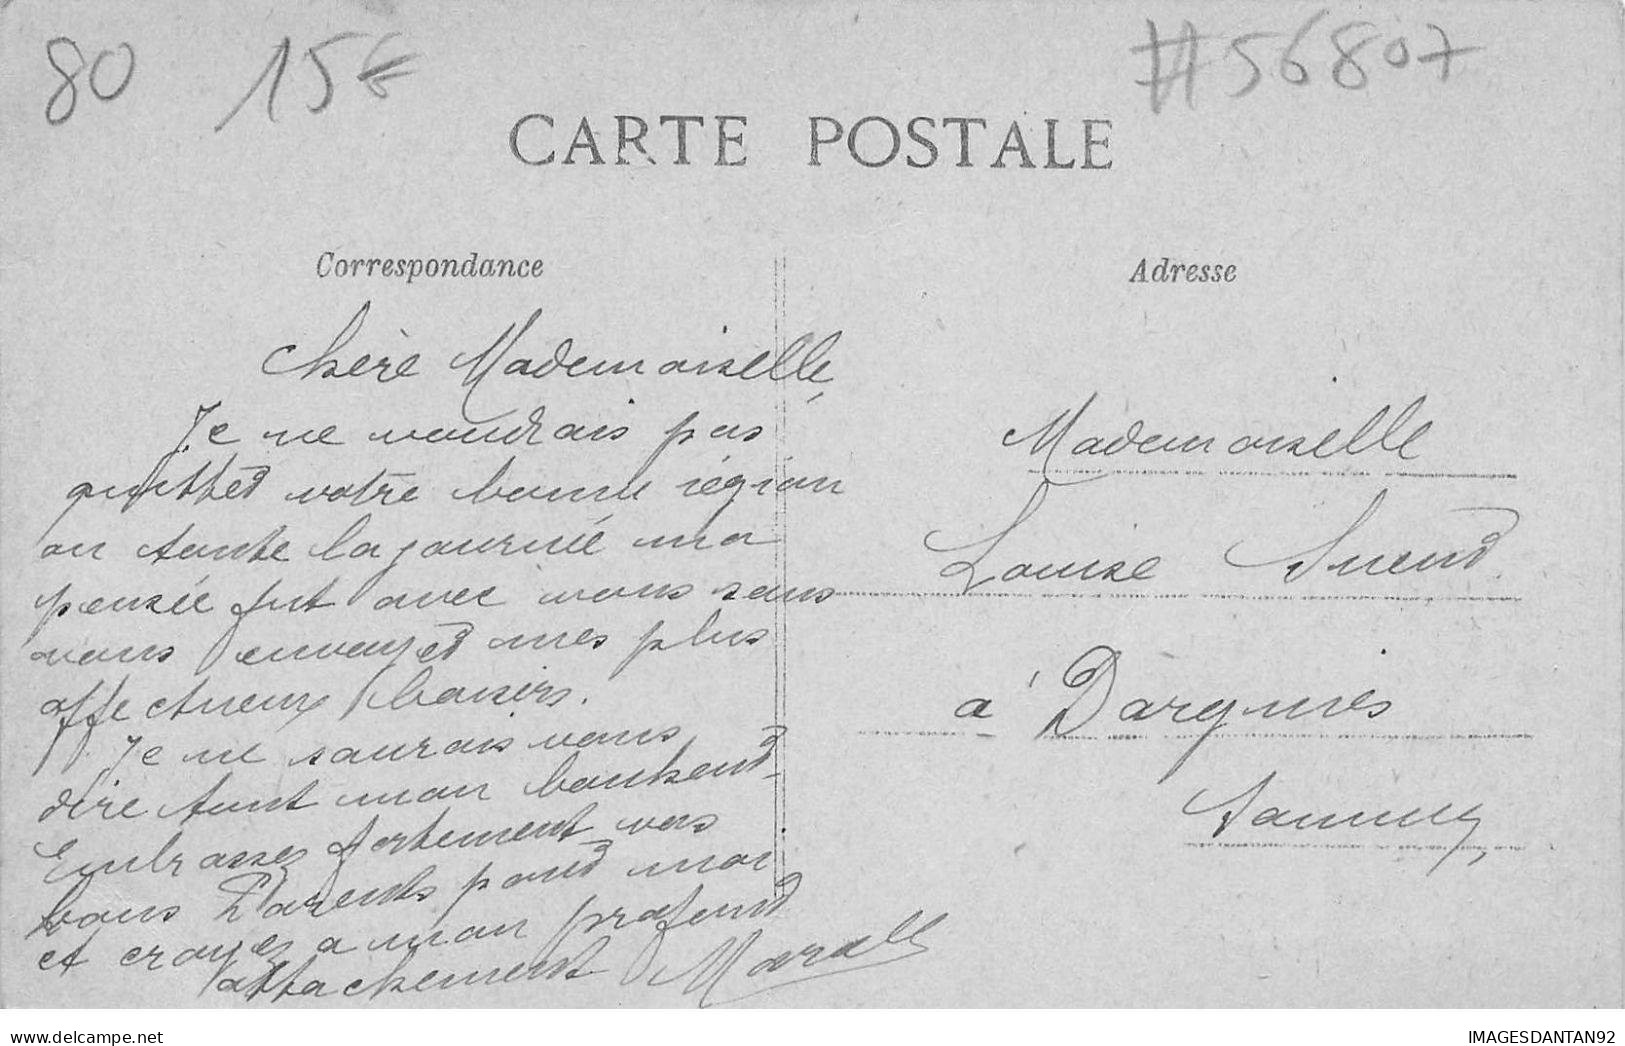 80 15€ #56807
CARTE POSTALE
Correspondance
Chère Mademoiselle,
Je ne voudrais pas
quitter votre bonne région
ou toute la journée ma
pensée fut avec vous sans
vous envoyer mes plus
affectueux baisers.
Je ne saurais vous
dire tout mon bonheur
Embrassez fortement vos
bons Parents pour moi
et croyez a mon profond
attachement
Adresse
Mademoiselle
Louise
à Dargnies
Somme
delcampe.net
IMAGESDANTAN92